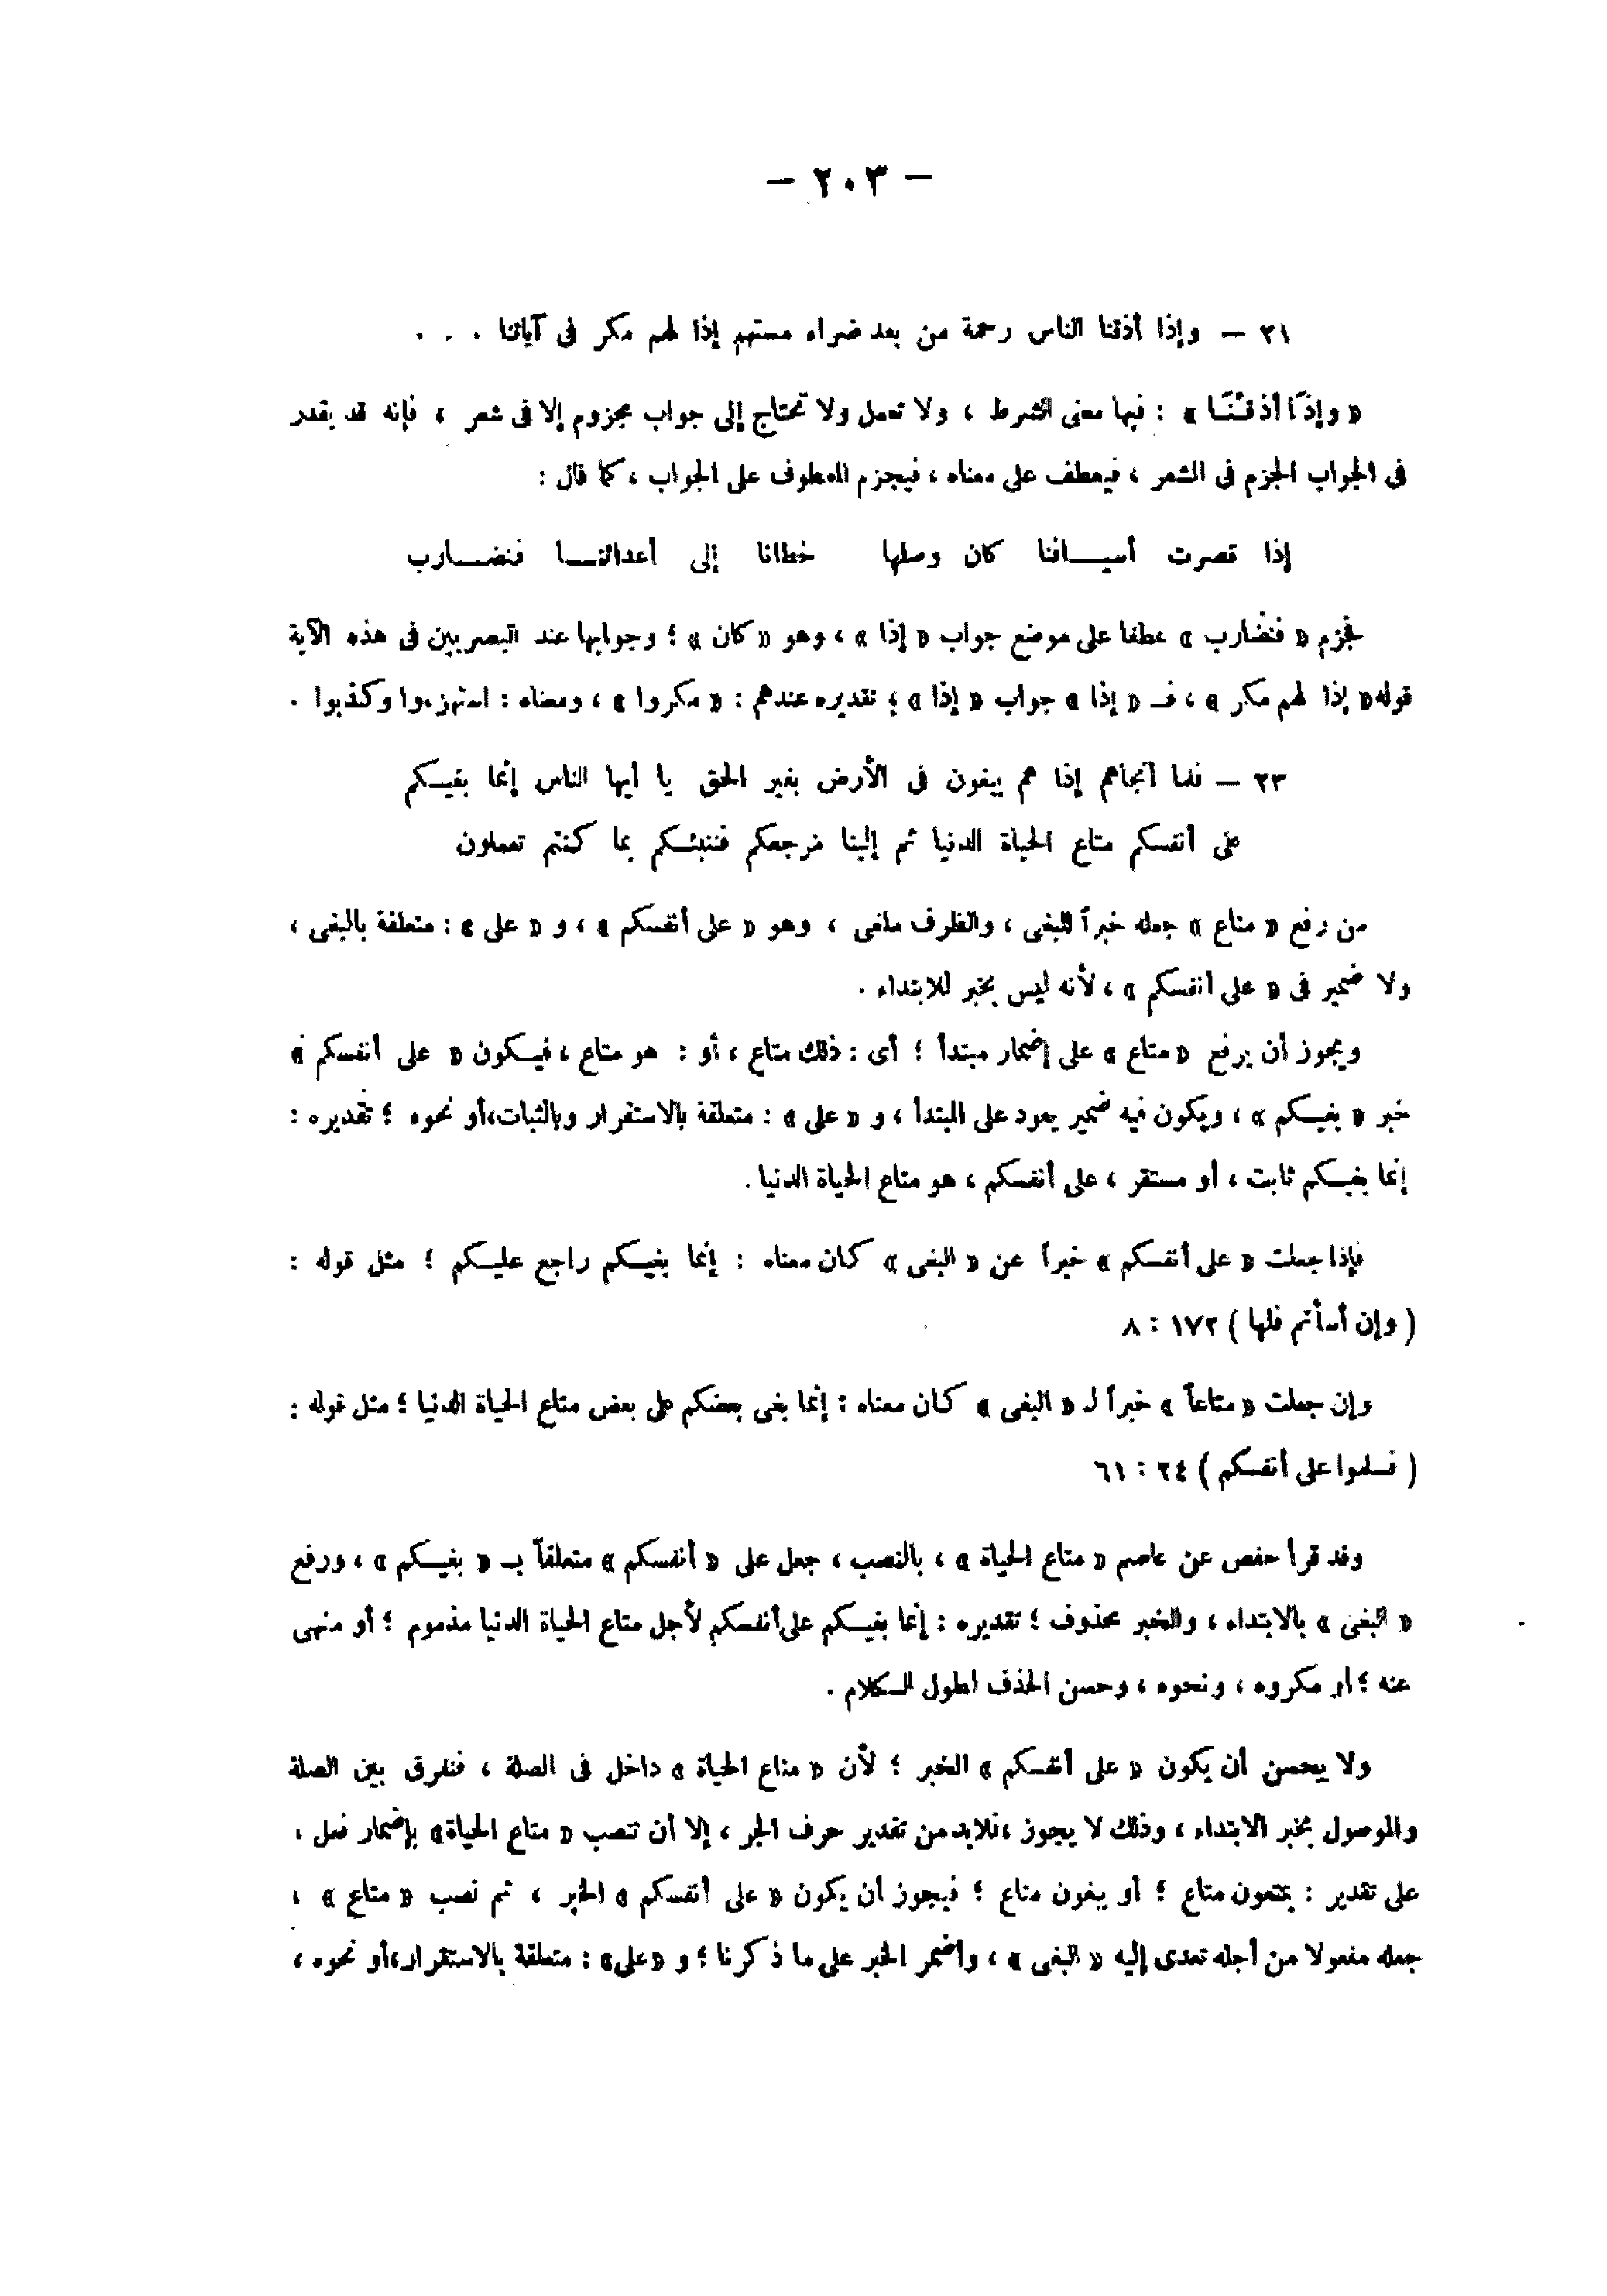 — ٢٠٣ —
٢١ — وإذا أذقنا الناس رحمة من بعد ضراء مستهم إذا لهم مكر فى آياتنا . . .
« وإذَا أذقْنَا » : فيها معنى الشرط ، ولا تعمل ولا تحتاج إلى جواب مجزوم إلا فى شعر ، فإنه قد يقدر
فى الجواب الجزم فى الشعر ، فيعطف على معناه ، فيجزم المعطوف على الجواب ، كما قال :
إذا قصرت أسيـافنا كان وصلها خطانا إلى أعدائنـا فنضـارب
فجزم « فنضارب » عطفا على موضع جواب « إذا » ، وهو « كان » ؛ وجوابها عند البصريين فى هذه الآية
قوله « إذا لهم مكر » ، فـ « إذا » جواب « إذا » ؛ تقديره عندهم : « مكروا » ، ومعناه : استهزءوا وكذبوا .
٢٣ — فلما أنجاهم إذا هم يبغون فى الأرض بغير الحق يا أيها الناس إنما بغيـكم
على أنفسكم متاع الحياة الدنيا ثم إلينا مرجعكم فننبئـكم بما كنتم تعملون
من رفع « متاع » جعله خبراً للبغى ، والظرف ملغى ، وهو « على أنفسكم » ، و « على » : متعلقة بالبغى ،
ولا ضمير فى « على أنفسكم » ، لأنه ليس بخبر للابتداء .
ويجوز أن يرفع « متاع » على إضمار مبتدأ ؛ أى : ذلك متاع ، أو : هو متاع ، فيـكون « على أنفسكم »
خبر « بغيـكم » ، ويكون فيه ضمير يعود على المبتدأ ، و « على » : متعلقة بالاستقرار وبالثبات،أو نحوه ؛ تقديره :
إنما بغيـكم ثابت ، أو مستقر ، على أنفسكم ، هو متاع الحياة الدنيا .
فإذا جعلت « على أنفسكم » خبراً عن « البغى » كان معناه : إنما بغيـكم راجع عليـكم ؛ مثل قوله :
( وإن أسأتم فلها ) ١٧٢ : ٨
وإن جعلت « متاعاً » خبراً لـ « البغى » كان معناه : إنما بغى بعضكم على بعض متاع الحياة الدنيا ؛ مثل قوله :
( فسلموا على أنفسكم ) ٢٤ : ٦١
وقد قرأ حفص عن عاصم « متاع الحياة » ، بالنصب ، جعل على « أنفسكم » متعلقاً بـ « بغيـكم » ، ورفع
« البغى » بالابتداء ، والخبر محذوف ؛ تقديره : إنما بغيـكم على أنفسكم لأجل متاع الحياة الدنيا مذموم ؛ أو منهى
عنه ؛ أو مكروه ، ونحوه ، وحسن الحذف لطول الـكلام .
ولا يحسن أن يكون « على أنفسكم » الخبر ؛ لأن « متاع الحياة » داخل فى الصلة ، فتفرق بين الصلة
والموصول بخبر الابتداء ، وذلك لا يجوز ،فلابد من تقدير حرف الجر ، إلا أن تنصب « متاع الحياة» بإضمار فعل ،
على تقدير : يمتعون متاع ؛ أو يبغون متاع ؛ فيجوز أن يكون « على أنفسكم » الخبر ، ثم نصب « متاع » ،
جعله مفعولا من أجله تعدى إليه « البغى » ، وأضمر الخبر على ما ذكرنا ؛ و «على» : متعلقة بالاستقرار،أو نحوه ،